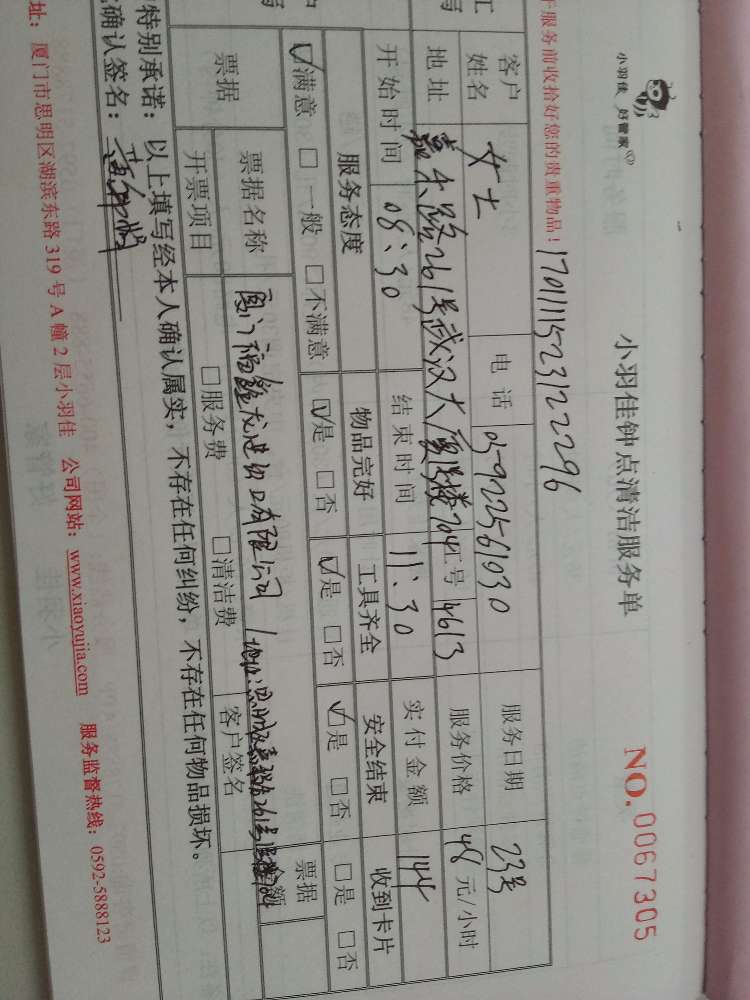 小羽佳 好管家
小羽佳钟点清洁服务单
NO. 0067305
服务前收拾好您的贵重物品！
17011115231222296
客户姓名 女士 电话 05922561030 服务日期 23号
地址 嘉禾路261号武汉大厦 704 工号 4613 服务价格 48 元/小时
开始时间 08:30 结束时间 11:30 实付金额 144
服务态度 物品完好 工具齐全 安全结束 收到卡片
☑满意 □一般 □不满意 ☑是 □否 ☑是 □否 ☑是 □否 □是 □否
票据 票据名称 厦门福 龙进出口有限公司 票据金额
开票项目 □服务费 □清洁费 客户签名
特别承诺：以上填写经本人确认属实，不存在任何纠纷，不存在任何物品损坏。
确认签名：
址：厦门市思明区湖滨东路 319 号 A 幢 2 层小羽佳 公司网站：www.xiaoyujia.com 服务监督热线：0592-5888123